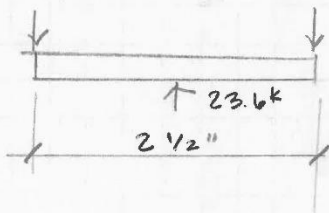 23.6k
2 1/2"